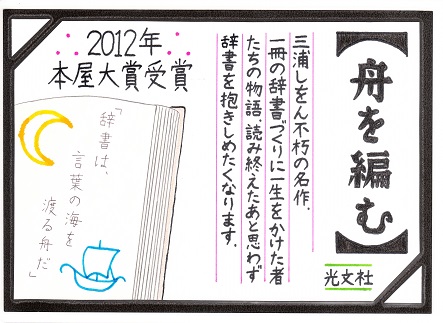 【舟を編む】
光文社
三浦しをん不朽の名作。
一冊の辞書づくりに一生をかけた者
たちの物語。読み終えたあと思わず
辞書を抱きしめたくなります。
2012年
本屋大賞受賞
「辞書は、
言葉の海を
渡る舟だ」